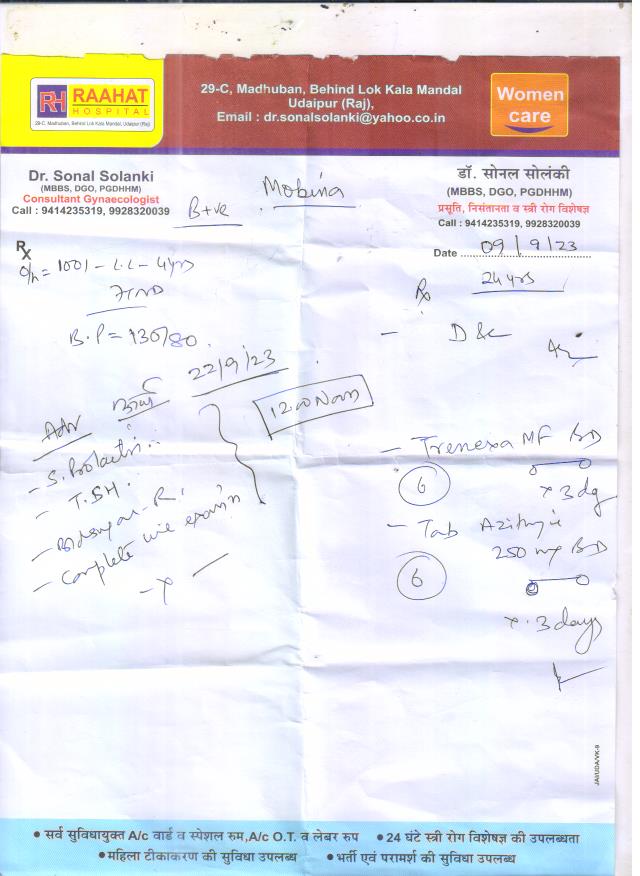 RH RAAHAT
HOSPITAL
29-C, Madhuban, Behind Lok Kala Mandal, Udaipur (Raj)
29-C, Madhuban, Behind Lok Kala Mandal
Udaipur (Raj),
Email : dr.sonalsolanki@yahoo.co.in
Women
care
Dr. Sonal Solanki
(MBBS, DGO, PGDHHM)
Consultant Gynaecologist
Call : 9414235319, 9928320039
B+ve
Mobina
डॉ. सोनल सोलंकी
(MBBS, DGO, PGDHHM)
प्रसूति, निसंतानता व स्त्री रोग विशेषज्ञ
Call : 9414235319, 9928320039
Date 09/9/23
Rx
O/h = 1001 - L.L - 4yrs
FTND
B.P = 130/80
22/9/23
12:00 Noon
Adv
- S. Prolactin
- T.S.H.
- Bld sugar - R.
- Complete urine exam
- x -
Rx
24 yrs
- D&C
- Trenexa MF BD
6
x 3 dy
- Tab
250 mg BD
6
x 3 days
JAI/UDA/VK-9
• सर्व सुविधायुक्त A/c वार्ड व स्पेशल रुम,A/c O.T. व लेबर रुप • 24 घंटे स्त्री रोग विशेषज्ञ की उपलब्धता
• महिला टीकाकरण की सुविधा उपलब्ध • भर्ती एवं परामर्श की सुविधा उपलब्ध